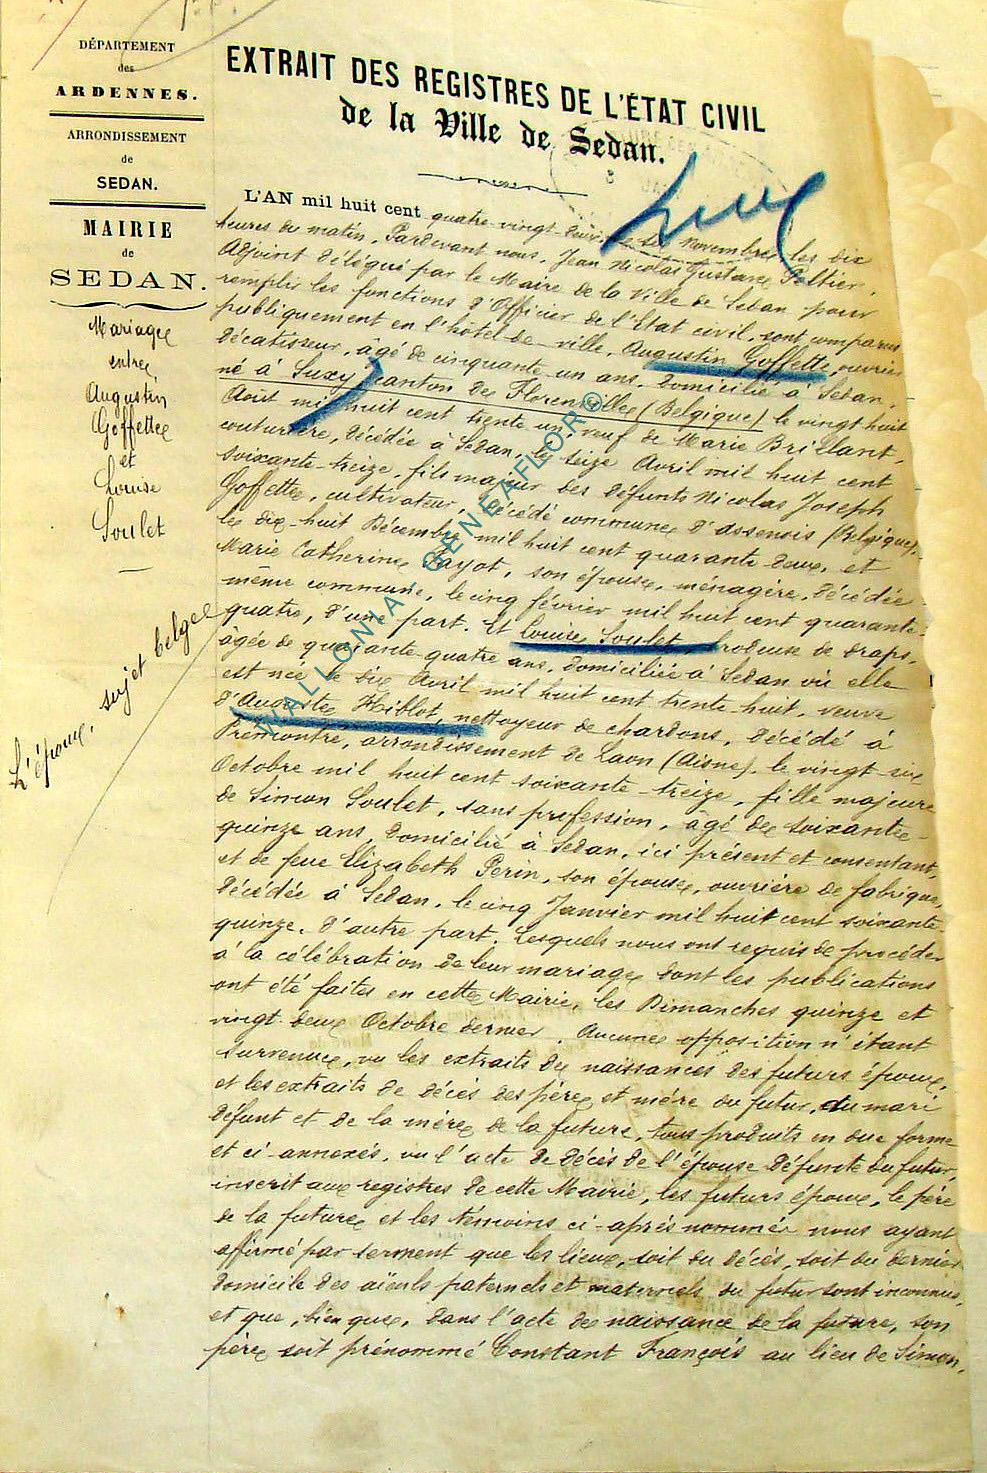 DÉPARTEMENT
des
ARDENNES.
ARRONDISSEMENT
de
SEDAN.
MAIRIE
de
SEDAN.
Mariage
entre
Augustin
Goffette
et
Louise
Soulet
L'époux, sujet belge
EXTRAIT DES REGISTRES DE L'ÉTAT CIVIL
de la Ville de Sedan.
L'AN mil huit cent quatre-vingt-deux, le novembre, les dix
heures du matin, Pardevant nous, Jean Nicolas Gustave Peltier,
Adjoint délégué par le Maire de la Ville de Sedan pour
remplir les fonctions d'Officier de l'Etat civil, sont comparus
publiquement en l'hôtel-de-ville, Augustin Goffette, ouvrier
décatisseur, âgé de cinquante un ans, domicilié à Sedan,
né à Suxy, canton de Florenville (Belgique) le vingt huit
Août mil huit cent trente un, veuf de Marie Brillant,
couturière, décédée à Sedan, le seize Avril mil huit cent
soixante-treize, fils majeur des défunts Nicolas Joseph
Goffette, cultivateur, décédé commune d'Assenois (Belgique),
le dix-huit Décembre mil huit cent quarante deux, et
Marie Catherine Jayot, son épouse, ménagère, décédée
même commune, le cinq février mil huit cent quarante-
quatre, d'une part. Et Louise Soulet, brodeuse de draps,
âgée de quarante-quatre ans, domiciliée à Sedan où elle
est née le dix Avril mil huit cent trente huit, veuve
d'Auguste Hiblot, nettoyeur de chardons, décédé à
Prémontré, arrondissement de Laon (Aisne), le vingt-six
Octobre mil huit cent soixante-treize, fille majeure
de Simon Soulet, sans profession, âgé de soixante-
quinze ans, domicilié à Sedan, ici présent et consentant,
et de feue Elizabeth Perin, son épouse, ouvrière de fabrique,
décédée à Sedan, le cinq Janvier mil huit cent soixante-
quinze, d'autre part. Lesquels nous ont requis de procéder
à la célébration de leur mariage dont les publications
ont été faites en cette Mairie, les Dimanches quinze et
vingt-deux Octobre dernier. Aucune opposition n'étant
survenue, vu les extraits des naissances des futurs époux,
et les extraits de décès des père et mère du futur, du mari
défunt et de la mère de la future, tous produits en due forme
et ci-annexés, vu l'acte de décès de l'épouse défunte du futur,
inscrit aux registres de cette Mairie, les futurs époux, le père
de la future et les témoins ci-après nommés nous ayant
affirmé par serment que les lieux, soit du décès, soit du dernier
domicile des aïeuls paternels et maternels du futur sont inconnus,
et que, bien que, dans l'acte de naissance de la future, son
père soit prénommé Constant François au lieu de Simon,
WALLONIA - GENEAFLOR©